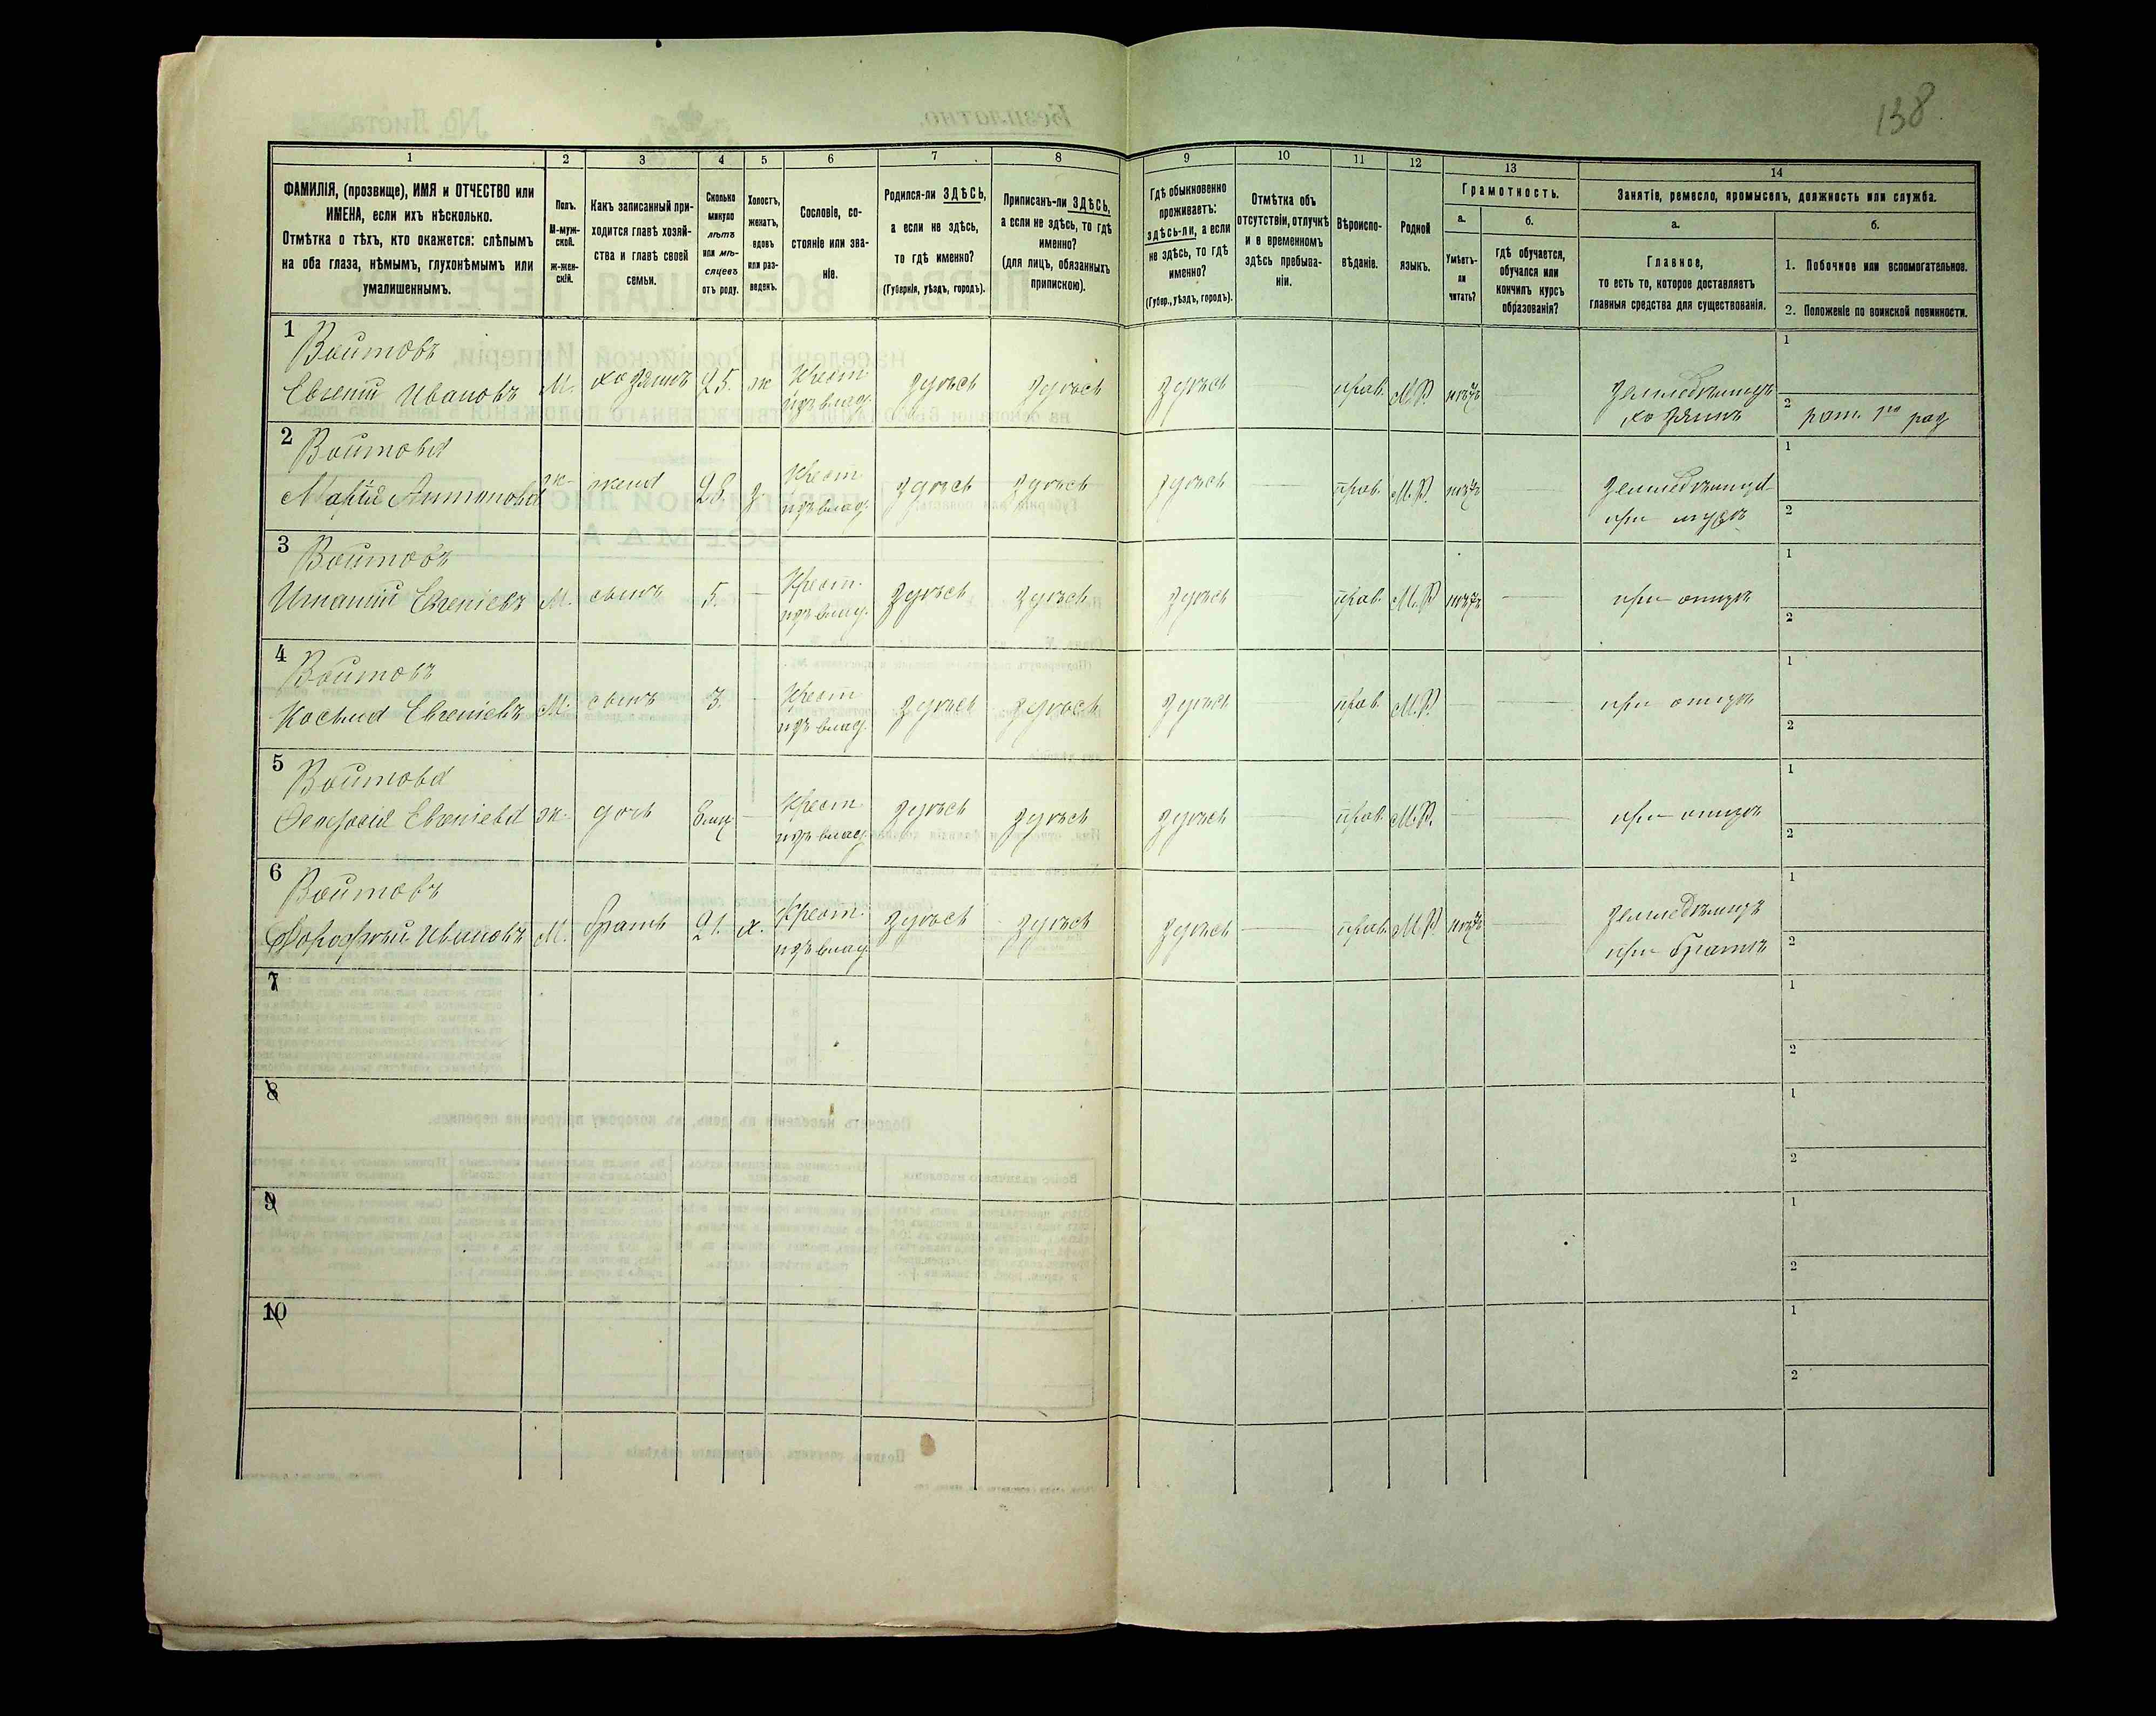 138
1 2 3 4 5 6 7 8 9 10 11 12 13 14
ФАМИЛІЯ, (прозвище), ИМЯ и ОТЧЕСТВО или
ИМЕНА, если ихъ нѣсколько.
Отмѣтка о тѣхъ, кто окажется: слѣпымъ
на оба глаза, нѣмымъ, глухонѣмымъ или
умалишеннымъ.
Полъ.
М-муж-
ской.
ж-жен-
скій.
Какъ записанный при-
ходится главѣ хозяй-
ства и главѣ своей
семьи.
Сколько
минуло
лѣтъ
или мѣ-
сяцевъ
отъ роду.
Холостъ,
женатъ,
вдовъ
или раз-
веденъ.
Сословіе, со-
стояніе или зва-
ніе.
Родился-ли ЗДѢСЬ,
а если не здѣсь,
то гдѣ именно?
(Губернія, уѣздъ, городъ).
Приписанъ-ли ЗДѢСЬ,
а если не здѣсь, то гдѣ
именно?
(для лицъ, обязанныхъ
припискою).
Гдѣ обыкновенно
проживаетъ:
здѣсь-ли, а если
не здѣсь, то гдѣ
именно?
(Губер., уѣздъ, городъ).
Отмѣтка объ
отсутствіи, отлучкѣ
и о временномъ
здѣсь пребыва-
ніи.
Вѣроиспо-
вѣданіе.
Родной
языкъ.
Грамотность.
а.
Умѣетъ-
ли
читать?
б.
Гдѣ обучается,
обучался или
кончилъ курсъ
образованія?
Занятіе, ремесло, промыселъ, должность или служба.
а.
Главное,
то есть то, которое доставляетъ
главныя средства для существованія.
б.
1. Побочное или вспомогательное.
2. Положеніе по воинской повинности.
1 Войтовъ
Евгеній Ивановъ М. хозяинъ 25. ж Крест. здѣсь здѣсь здѣсь прав. М.Р. нѣтъ земледѣлецъ 1
изъ влад. хозяинъ 2 рат. 1го раз
2 Войтова
Марія Антонова ж- жена 28 з Крест. здѣсь здѣсь здѣсь прав. М.Р. нѣтъ земледѣлица 1
изъ влад. при мужѣ 2
3 Войтовъ
Игнатій Евгеніевъ М. сынъ 5. Крест. здѣсь здѣсь здѣсь прав. М.Р. нѣтъ при отцѣ 1
изъ влад. 2
4 Войтовъ
Косьма Евгеніевъ М. сынъ 3. Крест. здѣсь здѣсь здѣсь прав. М.Р. при отцѣ 1
изъ влад. 2
5 Войтова
Евгеніева ж. дочь Крест. здѣсь здѣсь здѣсь прав. М.Р. при отцѣ 1
изъ влад. 2
6 Войтовъ
Дорофѣй Ивановъ М. братъ 21. х. Крест. здѣсь здѣсь здѣсь прав. М.Р. нѣтъ земледѣлецъ 1
изъ влад. при братѣ 2
7 1
2
8 1
2
9 1
2
10 1
2